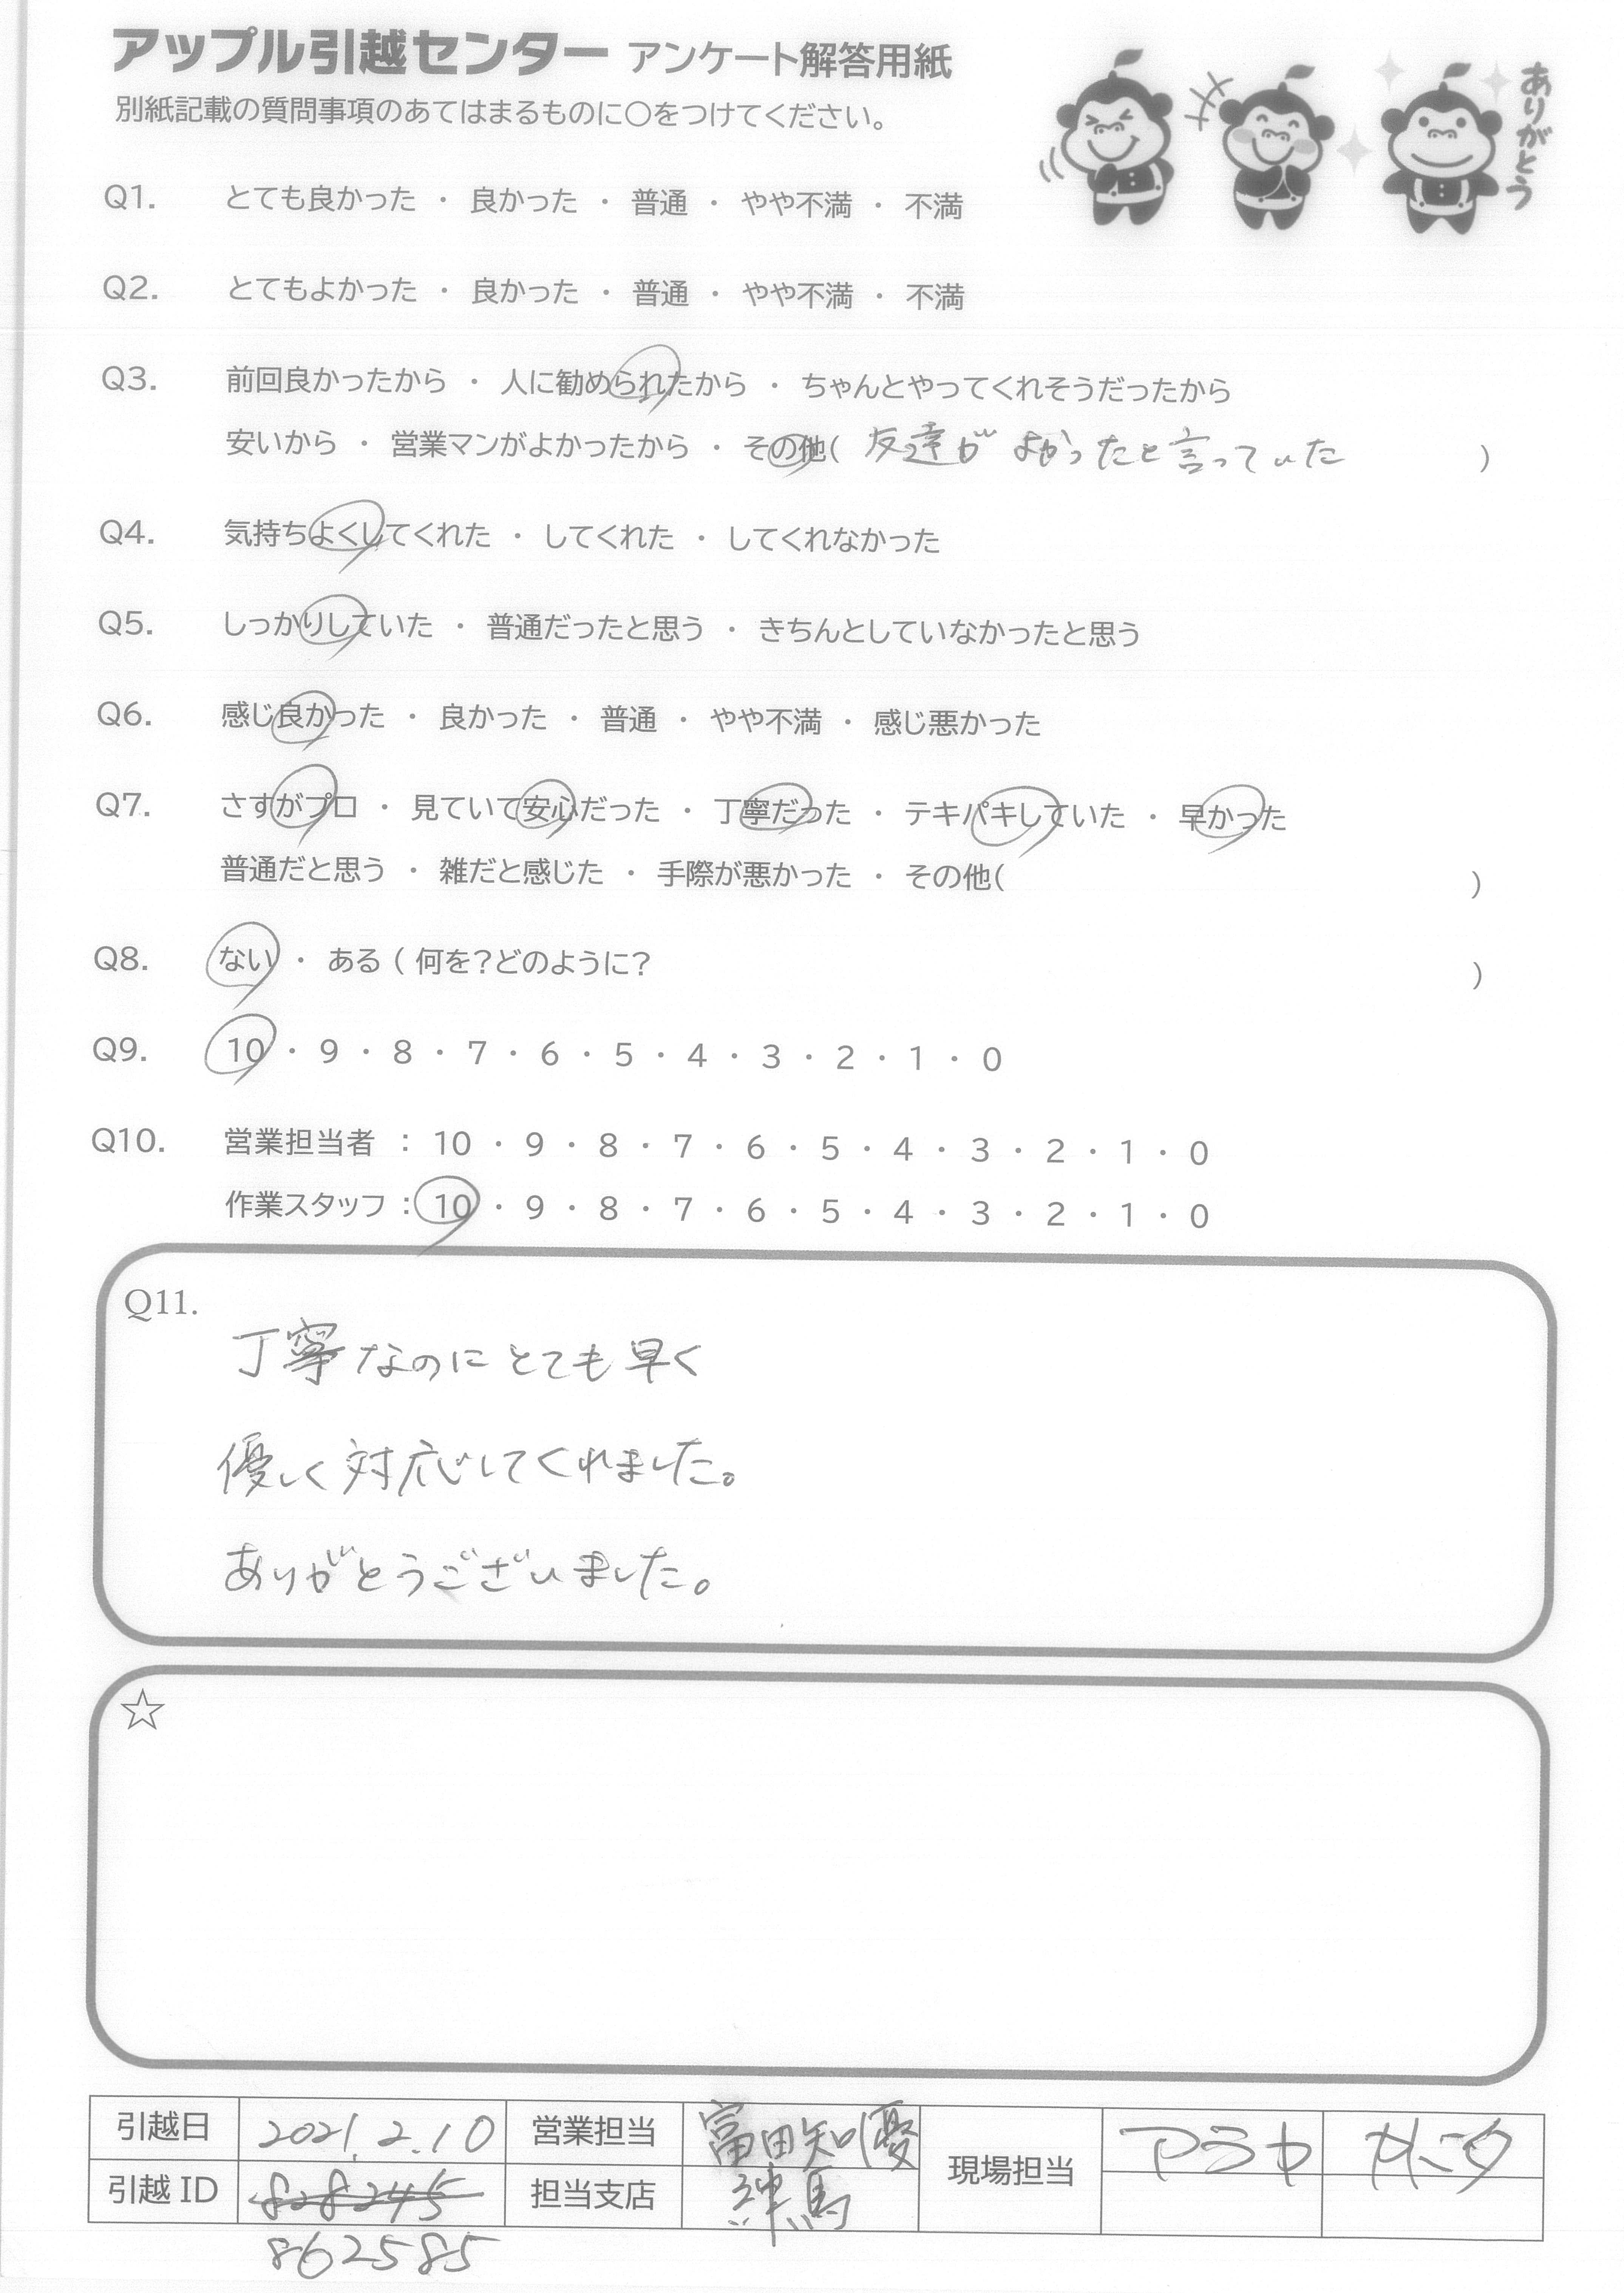 アップル引越センター アンケート解答用紙
別紙記載の質問事項のあてはまるものに〇をつけてください。
ありがとう
Q1. とても良かった ・ 良かった ・ 普通 ・ やや不満 ・ 不満
Q2. とてもよかった ・ 良かった ・ 普通 ・ やや不満 ・ 不満
Q3. 前回良かったから ・ 人に勧められたから ・ ちゃんとやってくれそうだったから
安いから ・ 営業マンがよかったから ・ その他( 友達が よかったと言っていた )
Q4. 気持ちよくしてくれた ・ してくれた ・ してくれなかった
Q5. しっかりしていた ・ 普通だったと思う ・ きちんとしていなかったと思う
Q6. 感じ良かった ・ 良かった ・ 普通 ・ やや不満 ・ 感じ悪かった
Q7. さすがプロ ・ 見ていて安心だった ・ 丁寧だった ・ テキパキしていた ・ 早かった
普通だと思う ・ 雑だと感じた ・ 手際が悪かった ・ その他( )
Q8. ない ・ ある ( 何を?どのように? )
Q9. 10 ・ 9 ・ 8 ・ 7 ・ 6 ・ 5 ・ 4 ・ 3 ・ 2 ・ 1 ・ 0
Q10. 営業担当者 : 10 ・ 9 ・ 8 ・ 7 ・ 6 ・ 5 ・ 4 ・ 3 ・ 2 ・ 1 ・ 0
作業スタッフ : 10 ・ 9 ・ 8 ・ 7 ・ 6 ・ 5 ・ 4 ・ 3 ・ 2 ・ 1 ・ 0
Q11.
丁寧なのにとても早く
優しく対応してくれました。
ありがとうございました。
☆
引越日 2021.2.10 営業担当 富田知優 現場担当 アラカ
引越 ID 828245 担当支店 練馬
862585